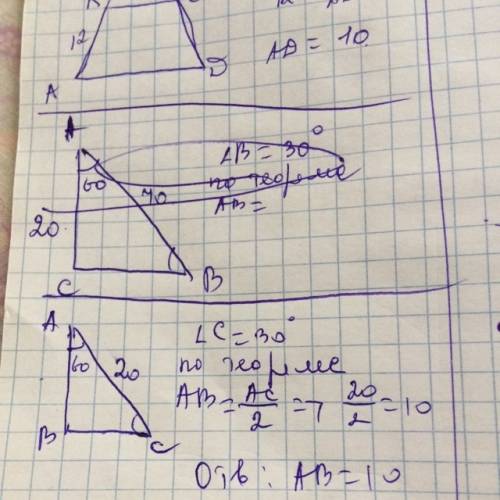 12
AD = 10
A
D
A
∠B = 30°
60
по теореме
40
AB =
20
C
B
A
∠C = 30°
60
20
по теореме
AB = AC/2 => 20/2 = 10
B
C
Отв: AB = 10